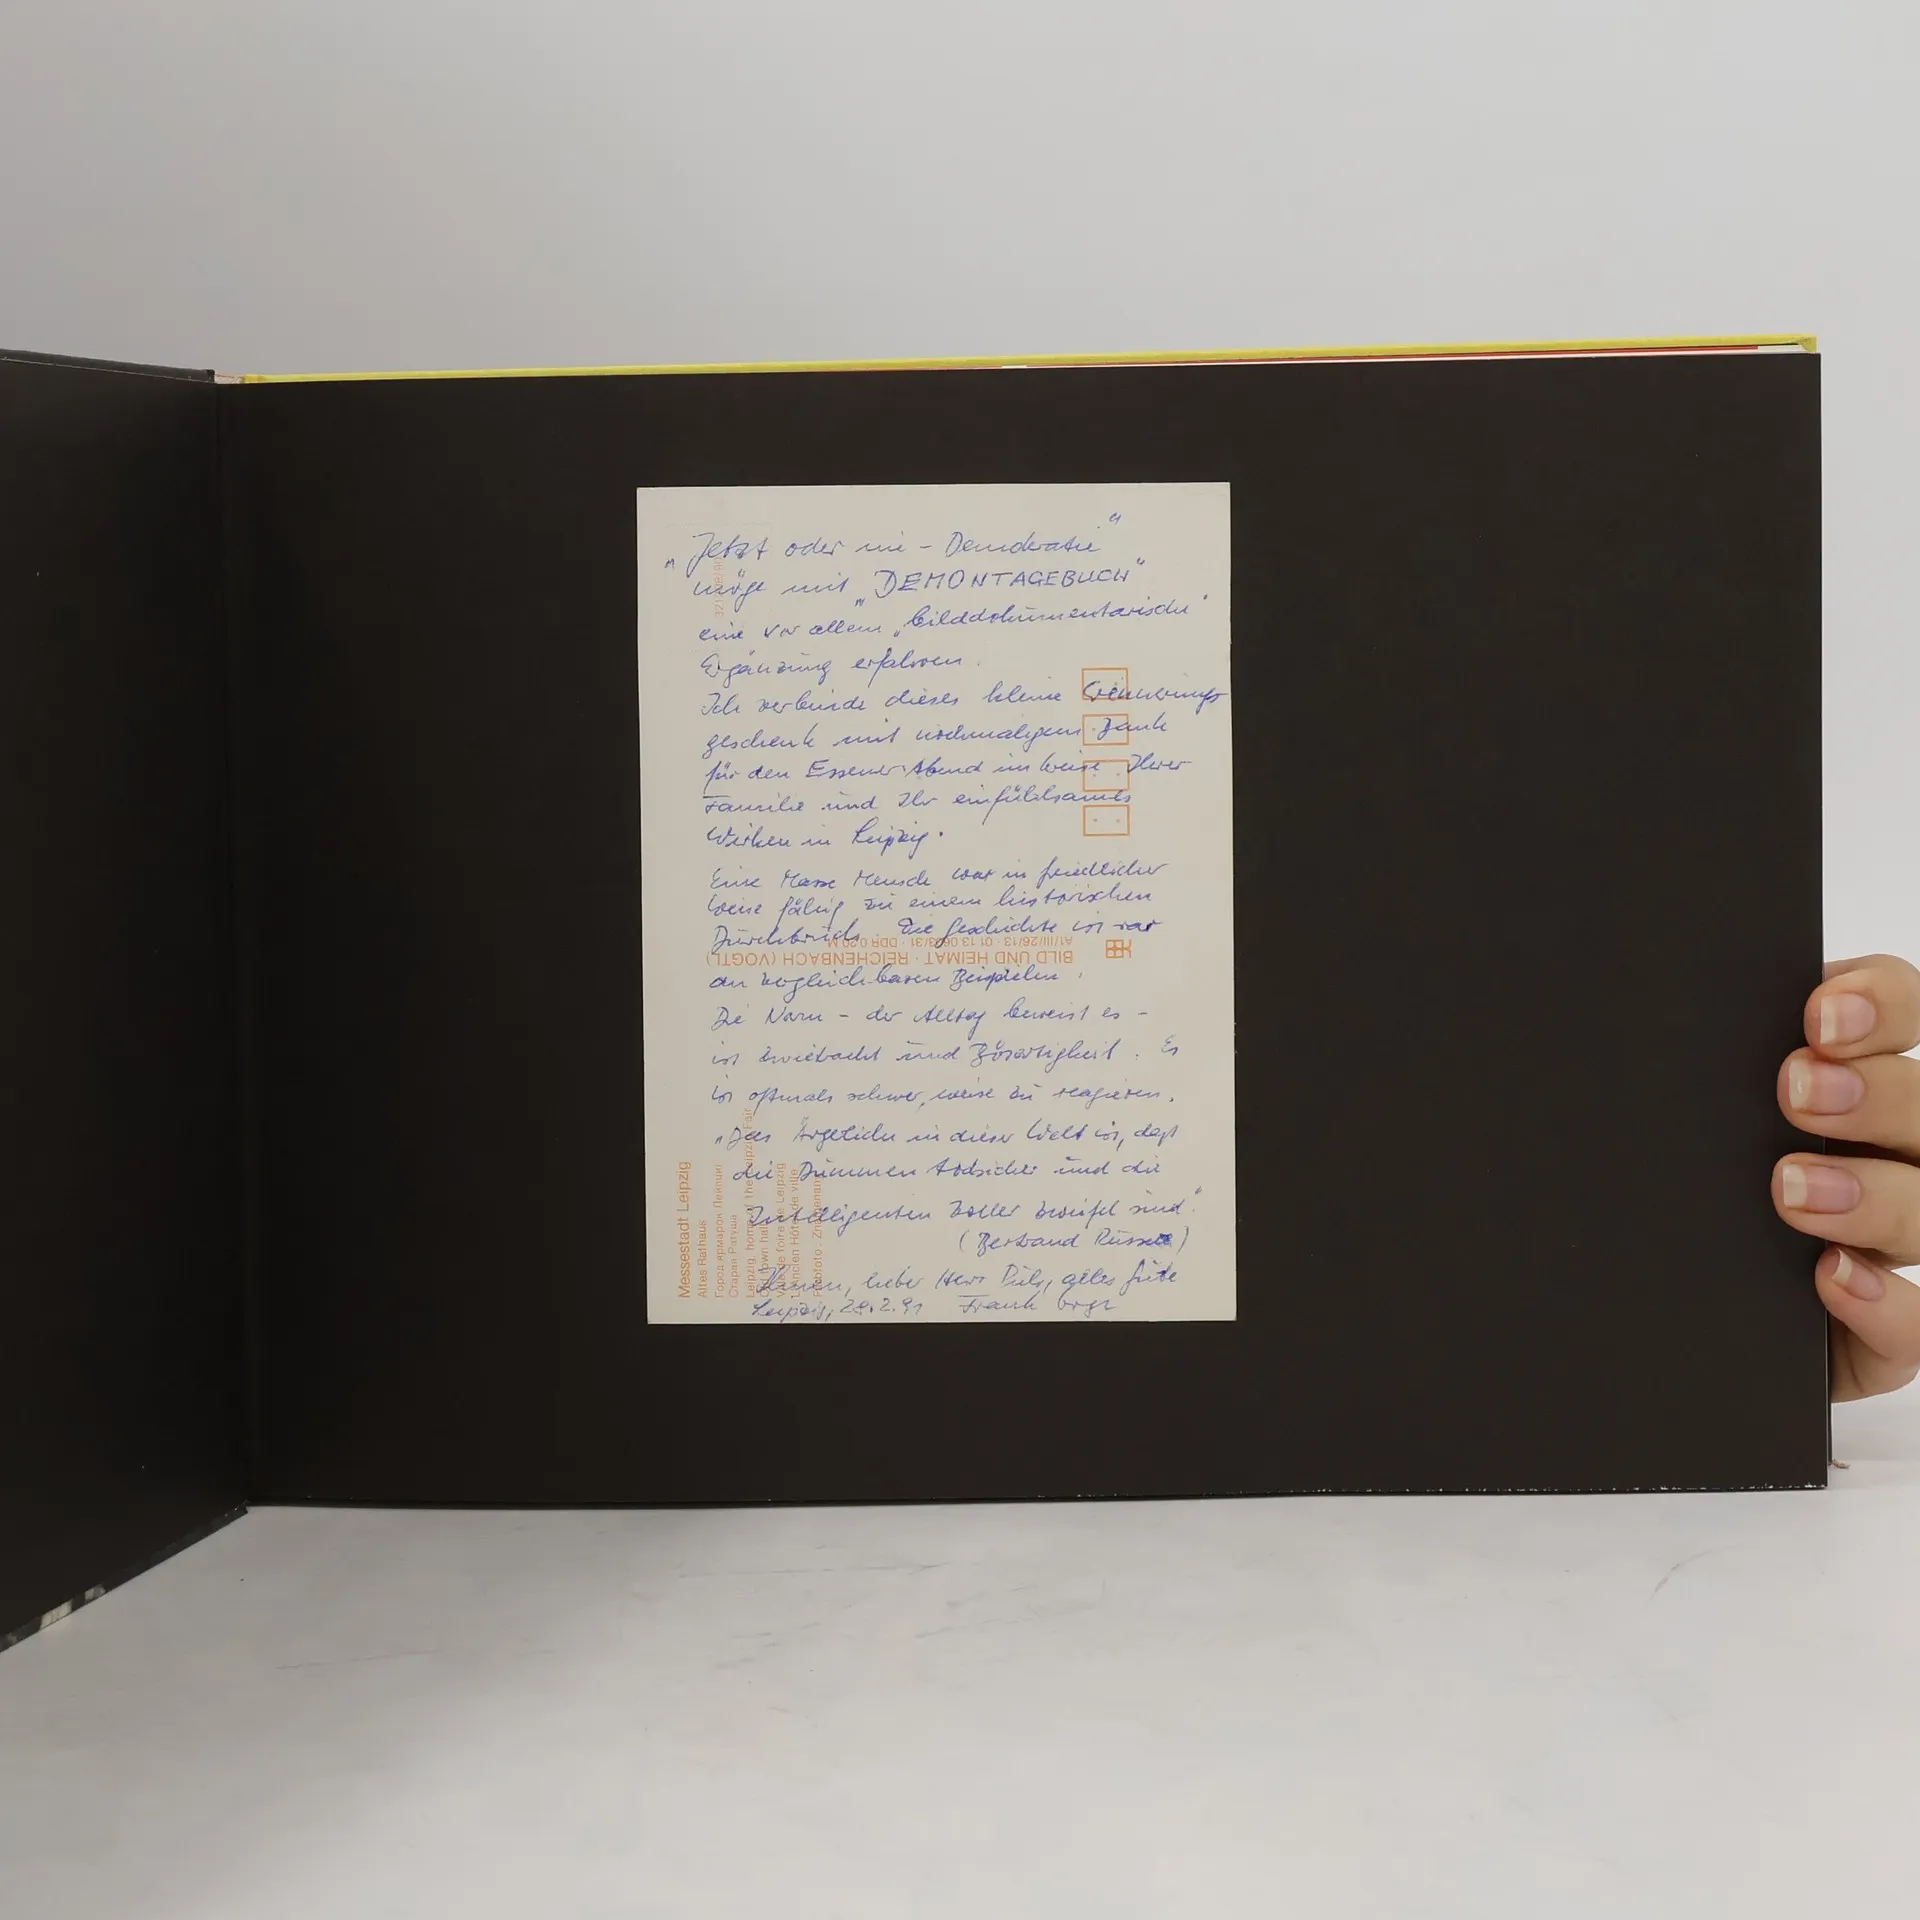 „Jetzt oder nie – Demokratie“
möge mit „DEMONTAGEBUCH“
eine vor allem „bilddokumentarische“
Ergänzung erfahren.
Ich verbinde dieses kleine Erinnerungs
geschenk mit nochmaligem Dank
für den Essener Abend im Kreise Ihrer
Familie und Ihr einfühlsames
Wirken in Leipzig.
Eine Masse Mensch war in friedlicher
Weise fähig zu einem historischen
Durchbruch. Die Geschichte ist rar
an vergleichbaren Beispielen.
Die Norm – der Alltag beweist es –
ist Zwietracht und Bösartigkeit. Es
ist oftmals schwer, weise zu reagieren.
„Das Ärgerliche in dieser Welt ist, daß
die Dummen todsicher und die
Intelligenten voller Zweifel sind“.
(Bertrand Russell)
Ihnen, lieber Herr Puls, alles Gute
Leipzig, 28.2.91 Frank
BILD UND HEIMAT · REICHENBACH (VOGTL)
A1/III/26/13 · 01 13 06 · DDR 0,20 M
Messestadt Leipzig
Altes Rathaus
Город ярмарок Лейпциг
Старая Ратуша
Leipzig, home of the Leipzig Fair
Old town hall
Ville de foire de Leipzig
L'Ancien Hôtel de ville